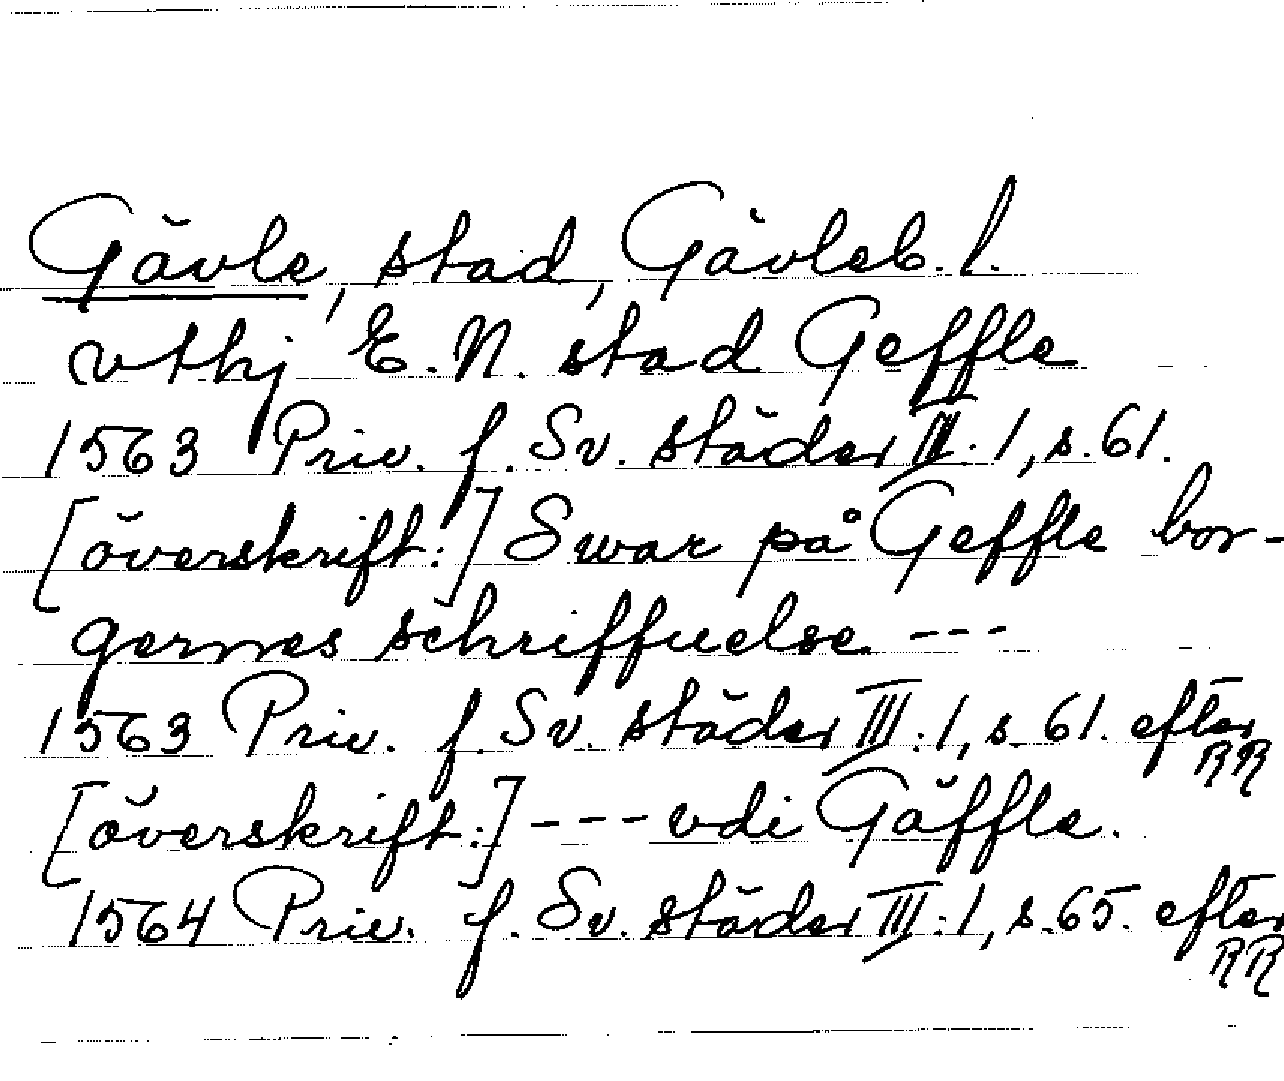 Gävle, stad, Gävleb. l.
vthj E. N. stad Geffle
1563 Priv. f. Sv. städer III:1, s. 61.
[överskrift:] Swar på Geffle bor-
gernes schriffuelse ---
1563 Priv. f. Sv. städer III:1, s. 61. efter
RR
[överskrift:] --- vdi Gäffle.
1564 Priv. f. Sv. städer III:1, s. 65. efter
RR